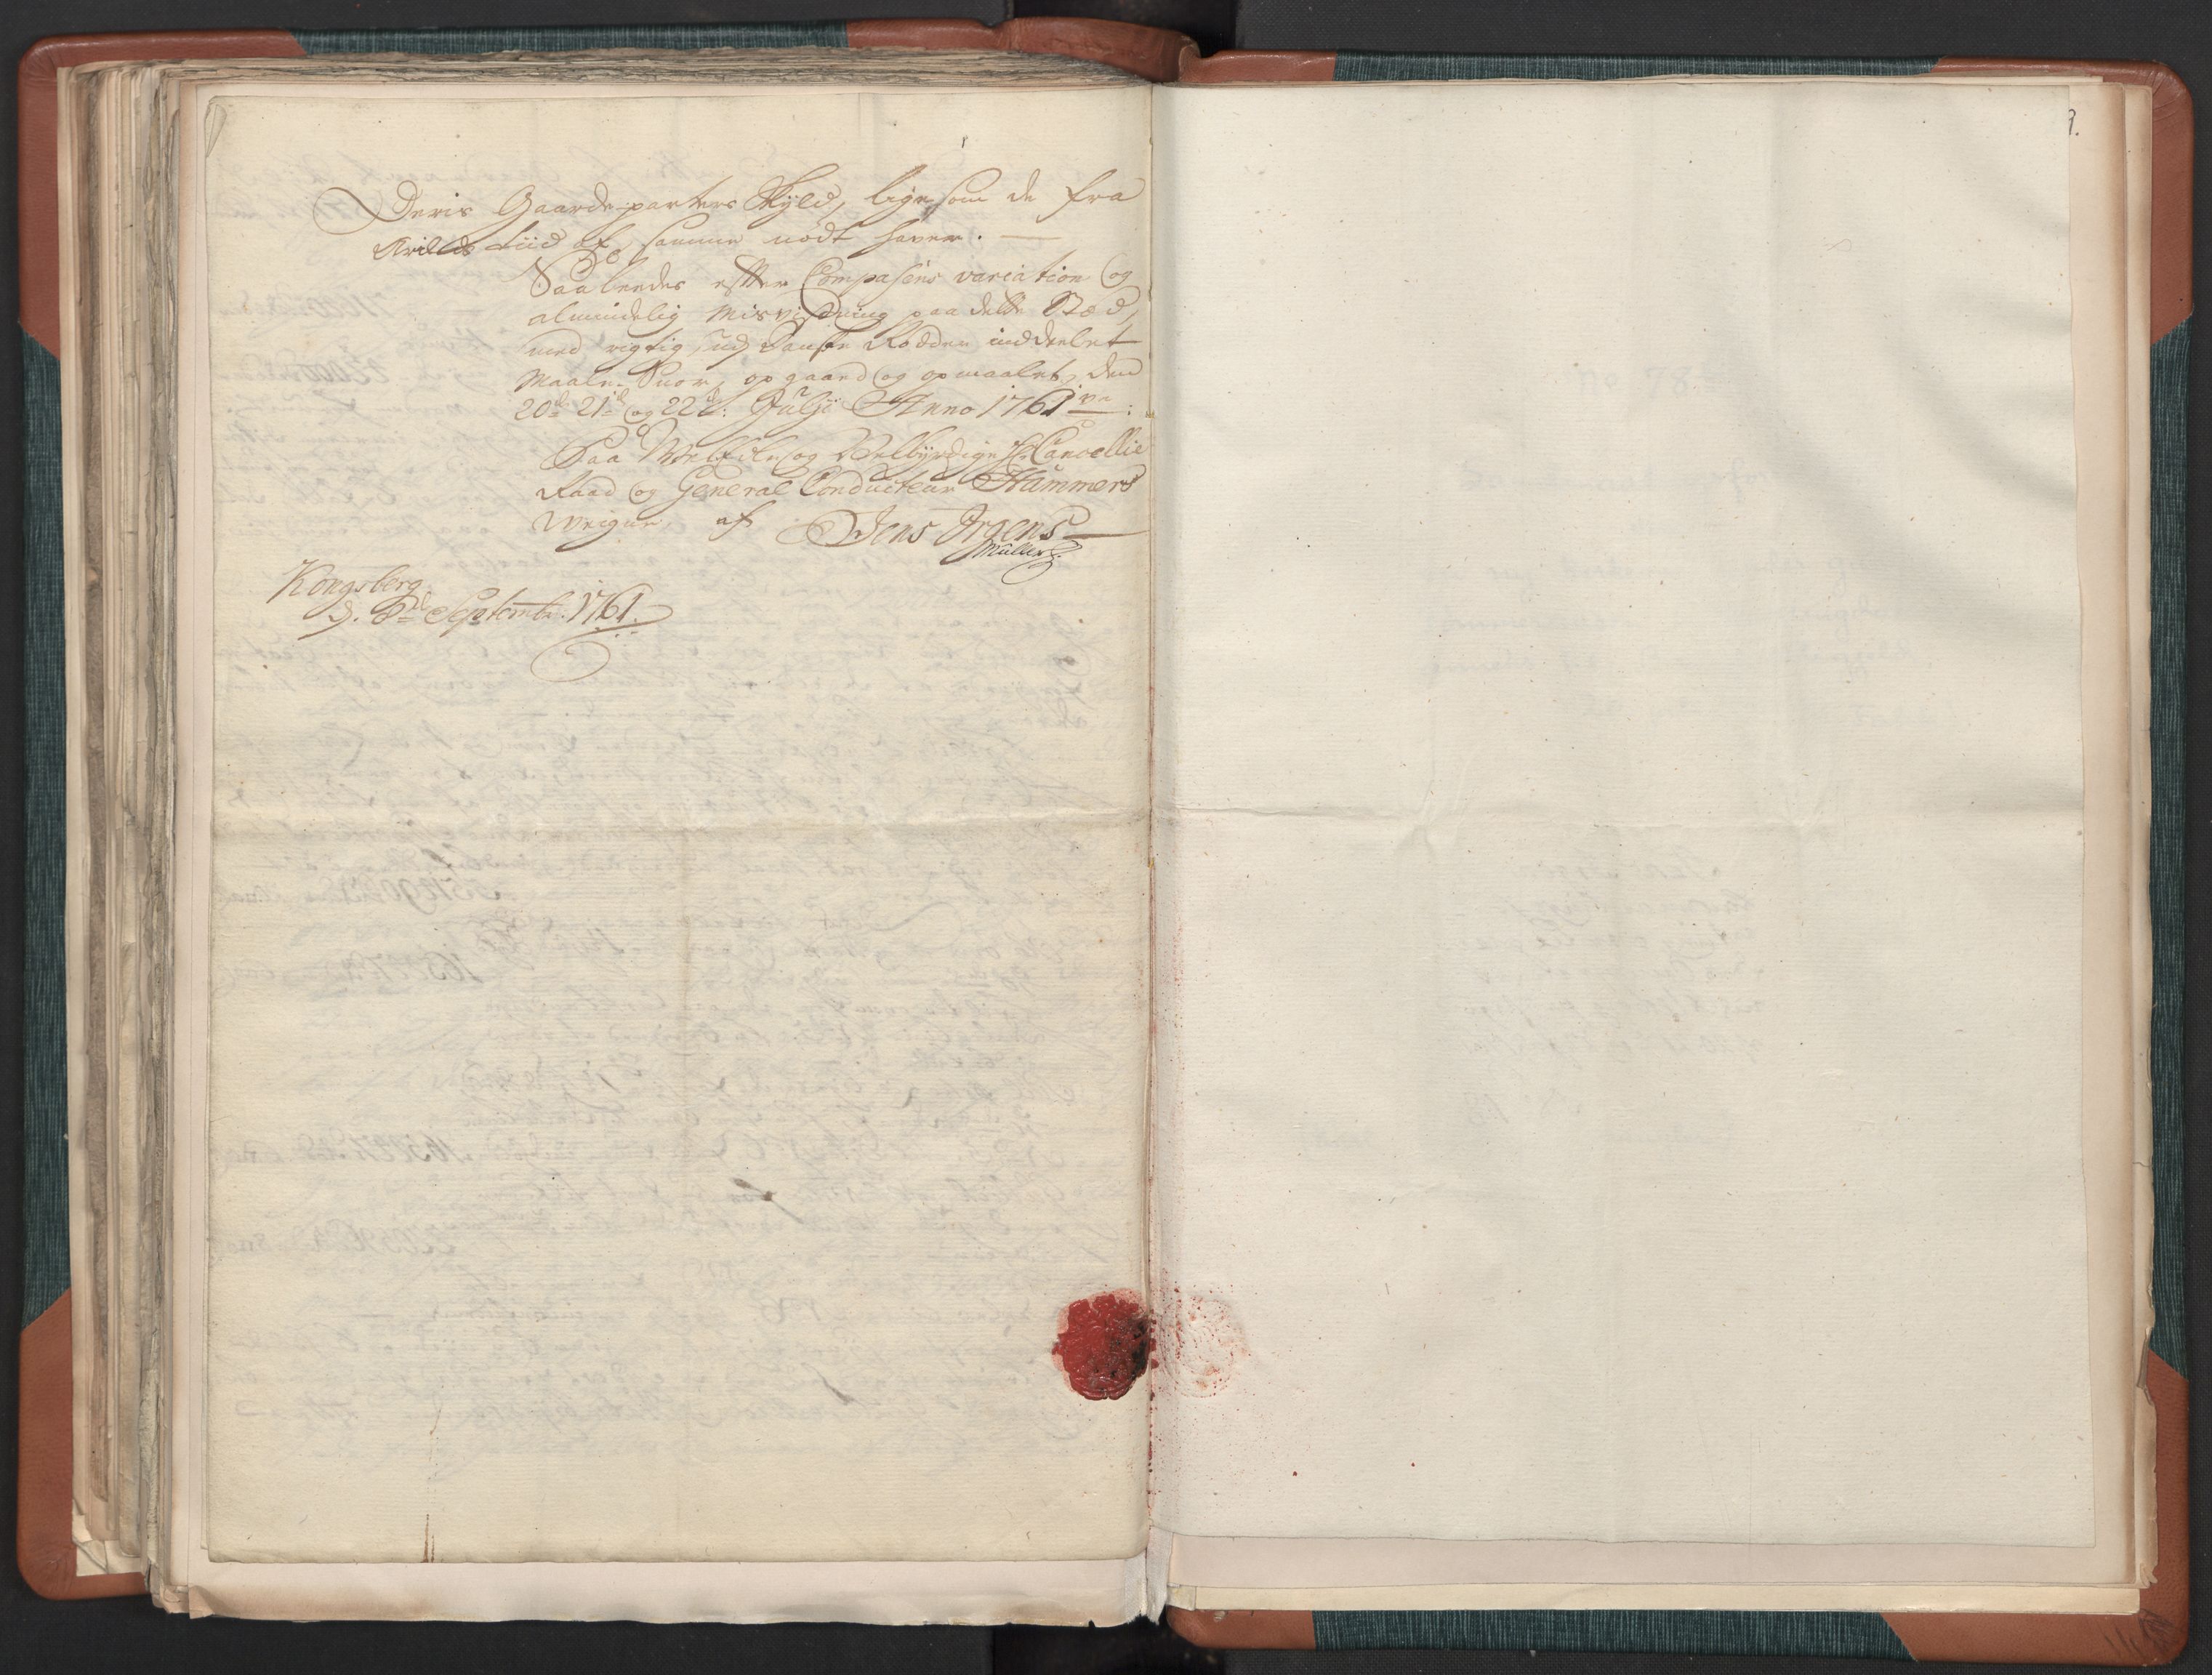 Deris Gaarde-parters Skyld, lige som de fra
Arilds tiid af samme nødt haver. —
Saaleedes efter Compasens variation og
almindelig Misviisning paa dette Stæd,
med rigtig udj Danske Rodder inddeelet
Maale-Snor, opgaaed og opmaalet, den
20de 21de og 22de: Julji Anno 1761
Paa Welædle og Velbyrdige Hr Cancellie
Raad og General Conducteur Hammers
Veigne af Jens Irgens
Müller
Kongsberg
d. Septembr: 1761.